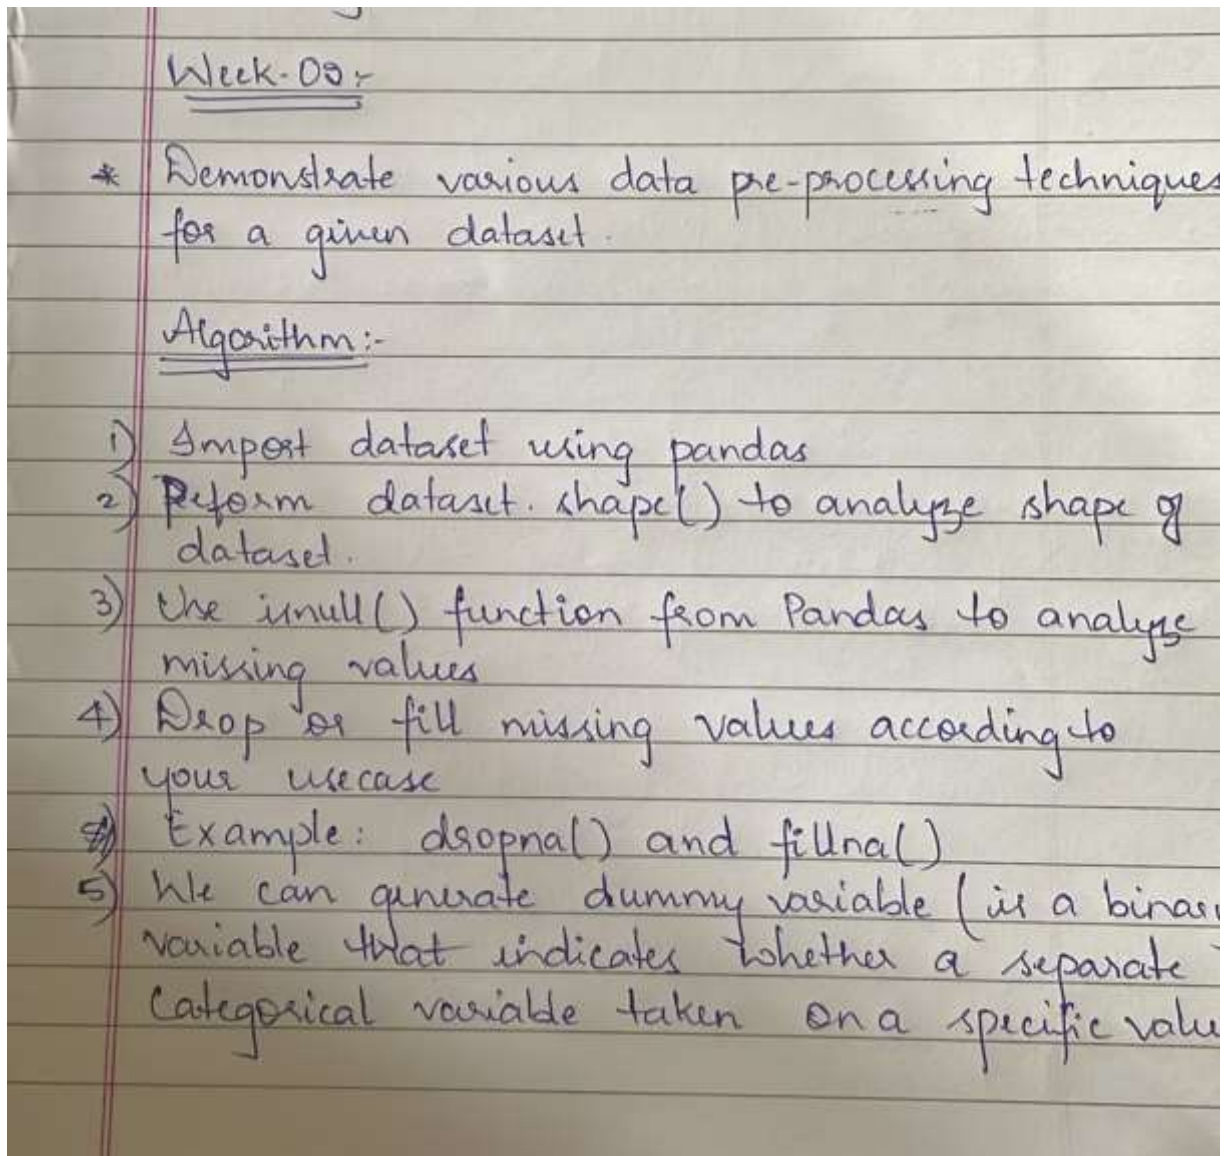 Week-03:-
* Demonstrate various data pre-processing techniques
for a given dataset.
Algorithm:-
1) Import dataset using pandas
2) Peform dataset.shape() to analyze shape of
dataset.
3) Use isnull() function from Pandas to analyze
missing values
4) Drop or fill missing values according to
your usecase
Example: dropna() and fillna()
5) We can generate dummy variable ( is a binary
variable that indicates whether a separate
Categorical variable taken on a specific value